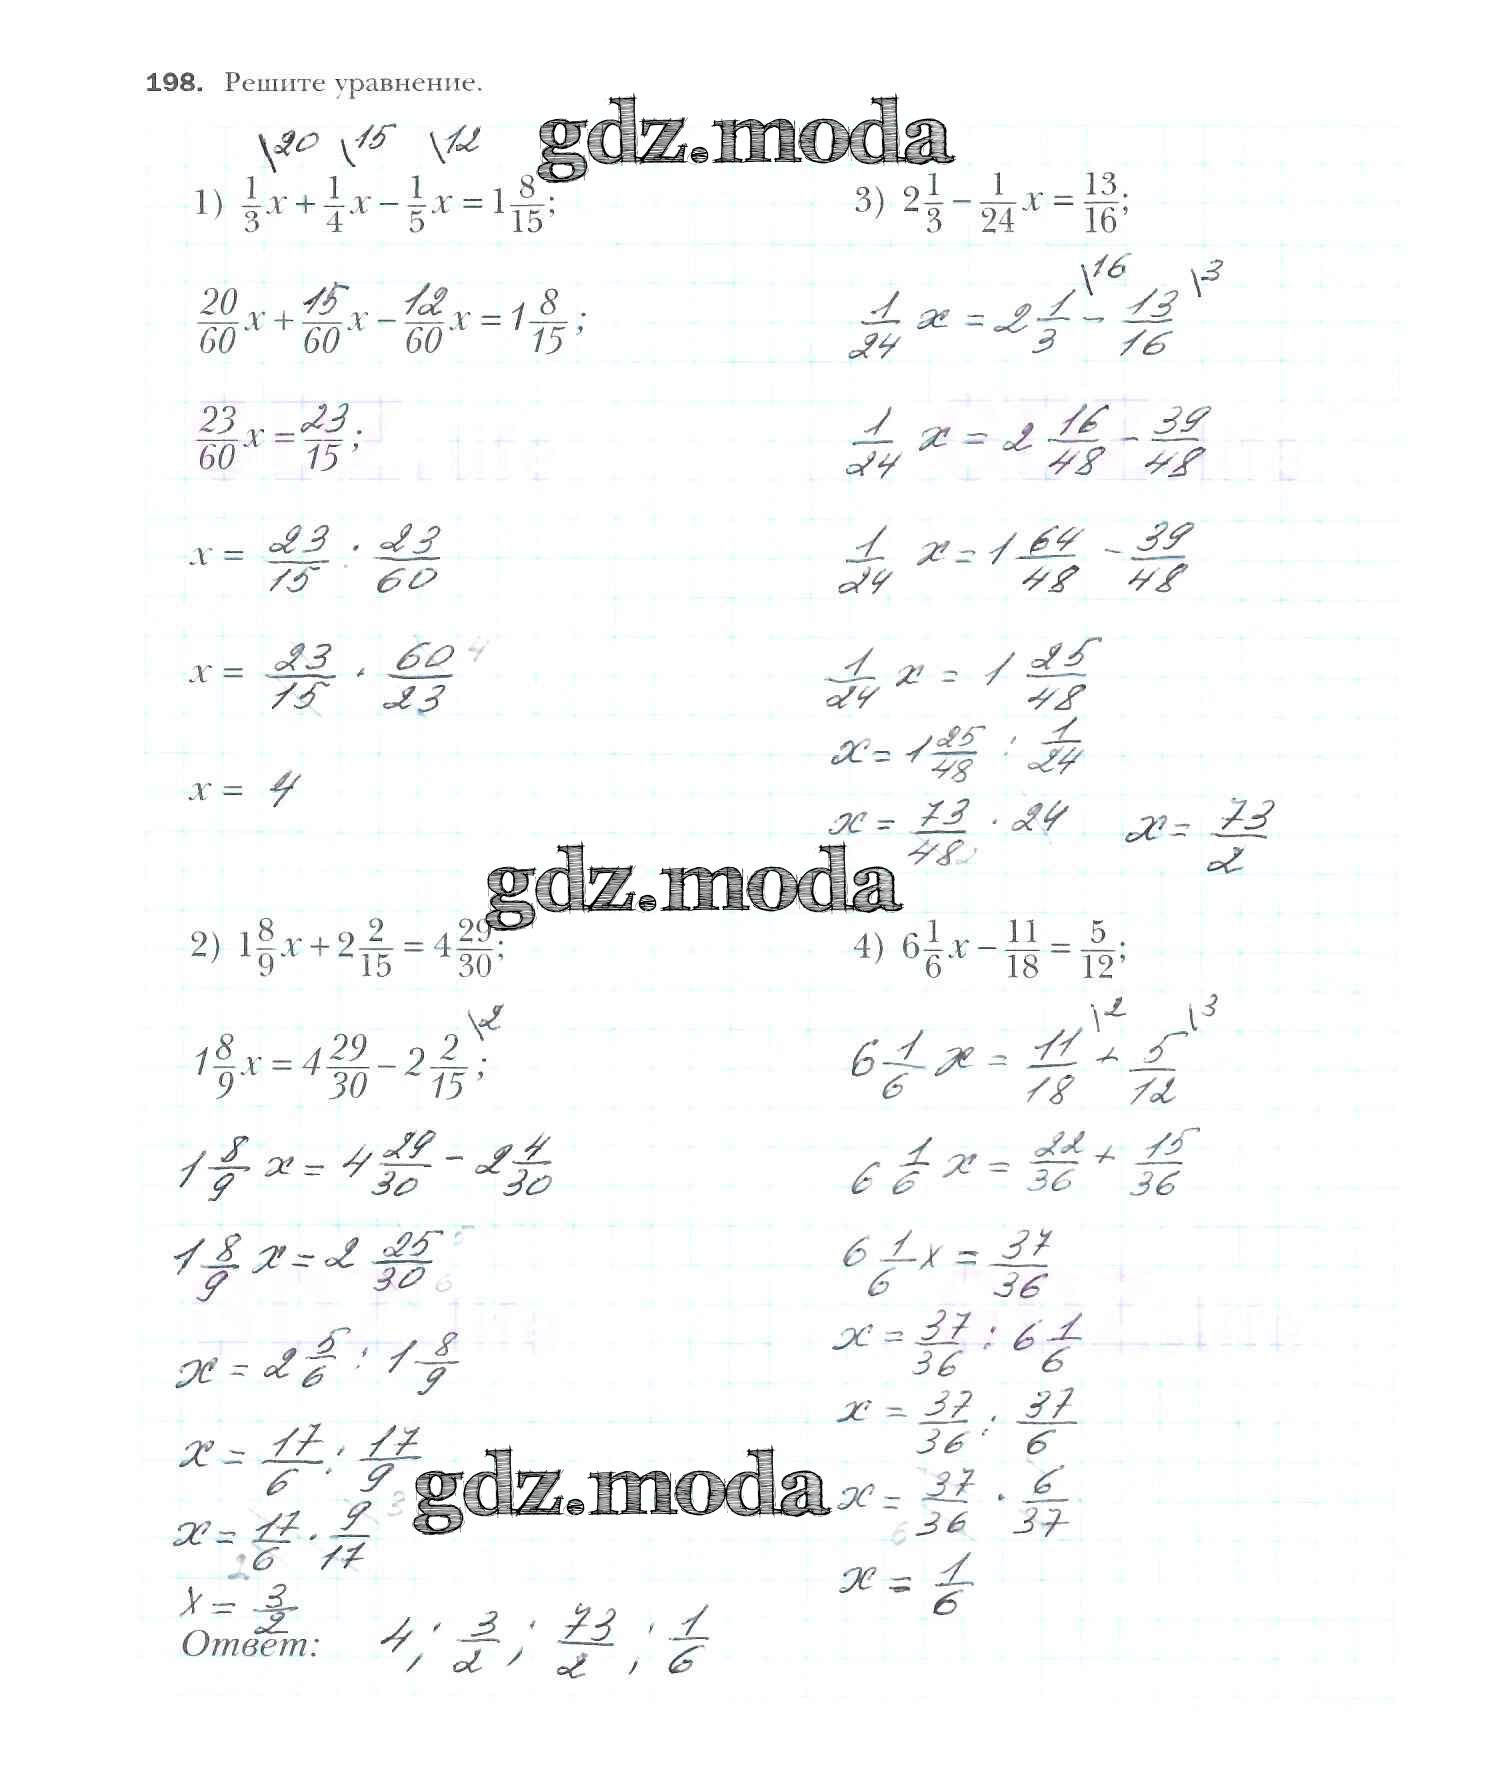 198. Решите уравнение.
gdz.moda
\20 \15 \12
1) 1/3 x + 1/4 x − 1/5 x = 1 8/15;
20/60 x + 15/60 x − 12/60 x = 1 8/15;
23/60 x = 23/15;
x = 23/15 : 23/60
x = 23/15 · 60/23 4
x = 4
3) 2 1/3 − 1/24 x = 13/16;
1/24 x = 2 1/3 \16 − 13/16 \3
1/24 x = 2 16/48 − 39/48
1/24 x = 1 64/48 − 39/48
1/24 x = 1 25/48
x = 1 25/48 : 1/24
x = 73/48 2 · 24 x = 73/2
gdz.moda
2) 1 8/9 x + 2 2/15 = 4 29/30;
1 8/9 x = 4 29/30 − 2 2/15 \2;
1 8/9 x = 4 29/30 − 2 4/30
1 8/9 x = 2 25/30 5 6
x = 2 5/6 : 1 8/9
x = 17/6 : 17/9
x = 17/6 · 9/17 3 2
x = 3/2
4) 6 1/6 x − 11/18 = 5/12;
6 1/6 x = 11/18 \2 + 5/12 \3
6 1/6 x = 22/36 + 15/36
6 1/6 x = 37/36
x = 37/36 : 6 1/6
x = 37/36 : 37/6
x = 37/36 · 6/37 6
x = 1/6
gdz.moda
Ответ: 4; 3/2; 73/2; 1/6